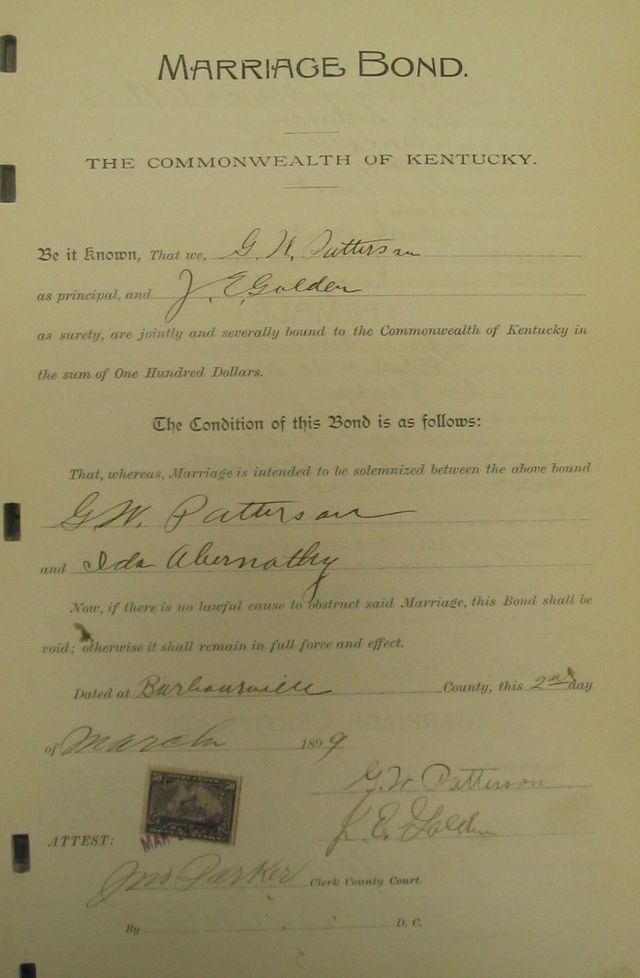 MARRIAGE BOND.
THE COMMONWEALTH OF KENTUCKY.
Be it Known, That we, G. W. Patterson
as principal, and J. E. Golden
as surety, are jointly and severally bound to the Commonwealth of Kentucky in
the sum of One Hundred Dollars.
The Condition of this Bond is as follows:
That, whereas, Marriage is intended to be solemnized between the above bound
G. W. Patterson
and Ida Abernathy
Now, if there is no lawful cause to obstruct said Marriage, this Bond shall be
void; otherwise it shall remain in full force and effect.
Dated at Barbourville County, this 2nd day
of March 1899
G. W. Patterson
J. E. Golden
50 50
MAR
ATTEST:
Jno Parker Clerk County Court.
By D. C.